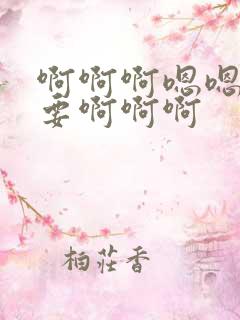 啊啊啊嗯嗯
要啊啊啊
柏莊香